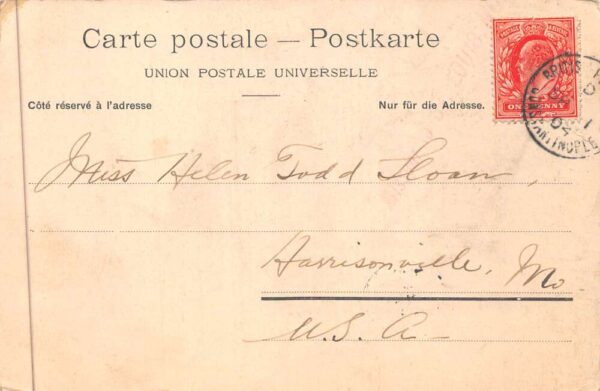 Carte postale — Postkarte
UNION POSTALE UNIVERSELLE
Côté réservé à l'adresse
Nur für die Adresse.
POSTAGE & REVENUE
ONE PENNY
Miss Helen Todd Sloan,
Harrisonville, Mo
U.S.A